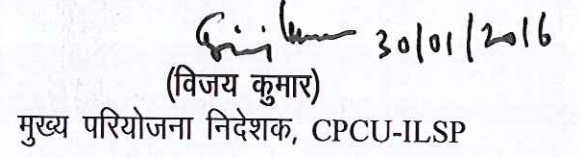 30/01/2016
(विजय कुमार)
मुख्य परियोजना निदेशक, CPCU-ILSP